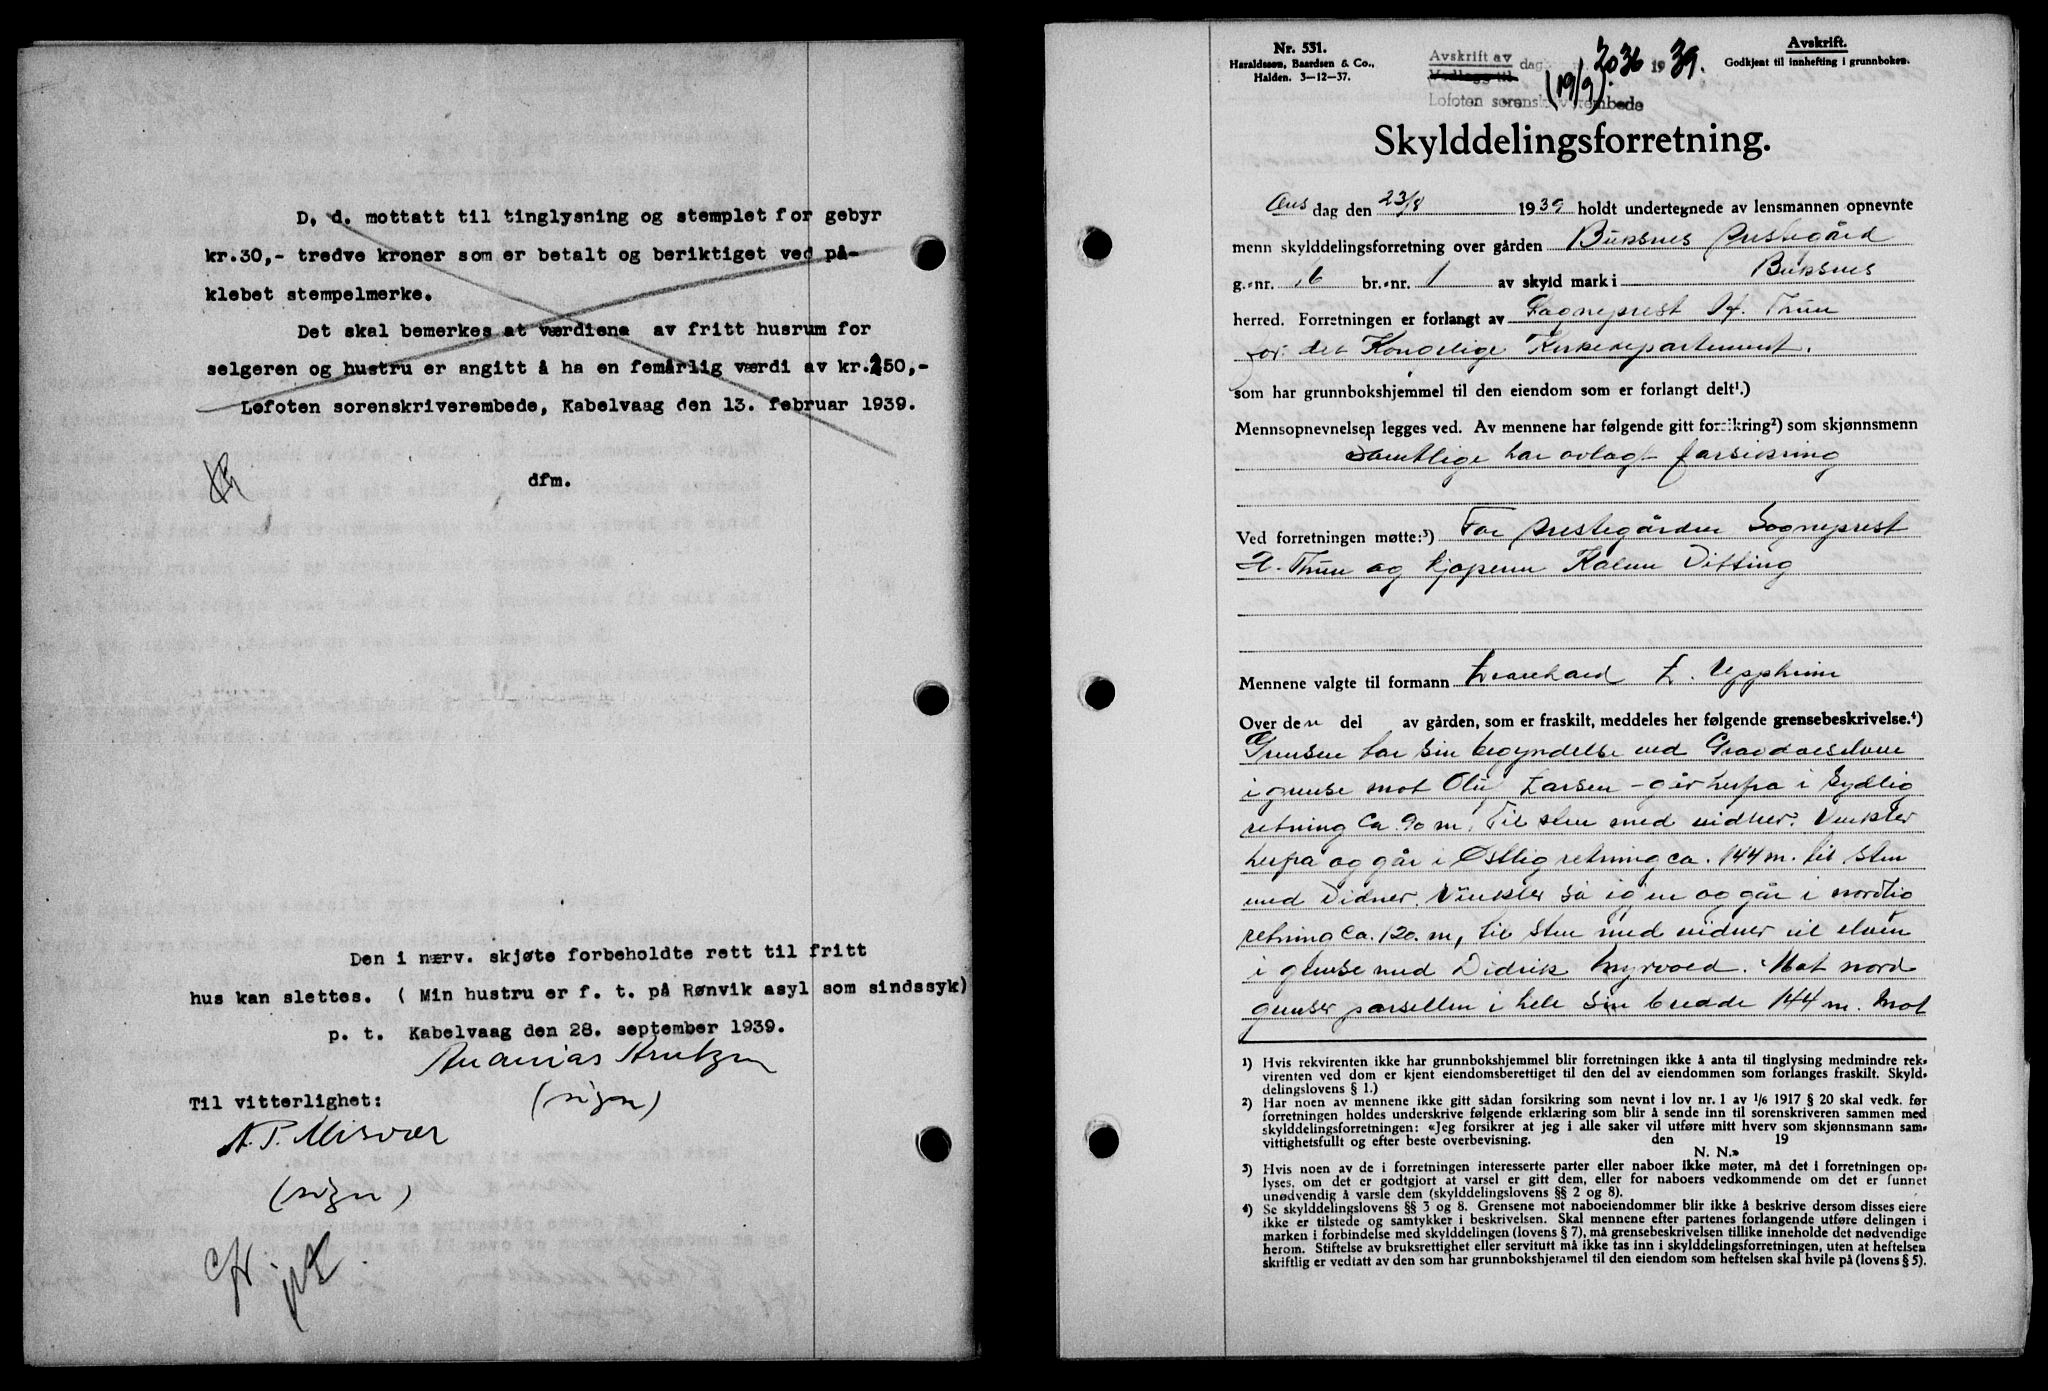 D. d. mottatt til tinglysning og stemplet for gebyr
kr.30,- tredve kroner som er betalt og beriktiget ved på-
klebet stempelmerke.
Det skal bemerkes at værdiene av fritt husrum for
selgeren og hustru er angitt å ha en femårlig værdi av kr.250,-
Lofoten sorenskriverembede, Kabelvaag den 13. februar 1939.
dfm.
Den i nærv. skjøte forbeholdte rett til fritt
hus kan slettes. ( Min hustru er f. t. på Rønvik asyl som sindssyk)
p. t. Kabelvaag den 28. september 1939.
Ananias Arntzen
(sign)
Til vitterlighet:
A. P. Misvær
(sign)
Nr. 531.
Haraldssen, Baardsen & Co.,
Halden. 3-12-37.
Avskrift av
Vedlegg til
dag 2036 1939.
(19/9)
Lofoten sorenskriverembede
Avskrift.
Godkjent til innhefting i grunnboken.
Skylddelingsforretning.
Ons dag den 23/8 1939 holdt undertegnede av lensmannen opnevnte
menn skylddelingsforretning over gården Buksnes Prestegård
g.-nr. 16 br.-nr. 1 av skyld mark i Buksnes
herred. Forretningen er forlangt av Sogneprest H. Thue
for det Kongelige Kirkedepartement.
som har grunnbokshjemmel til den eiendom som er forlangt delt¹.)
Mennsopnevnelsen legges ved. Av mennene har følgende gitt forsikring²) som skjønnsmenn
Samtlige har avlagt forsikring
Ved forretningen møtte:³) For Prestegården Sogneprest
H. Thue og kjøperen
Mennene valgte til formann E. Uppheim
Over den del av gården, som er fraskilt, meddeles her følgende grensebeskrivelse.⁴)
Grensen tar sin begyndelse ved Gravdalselven
i grense mot Oluf Larsen - går herfra i Sydlig
retning ca. 90 m. Til sten med vidner. Vinkler
herfra og går i Østlig retning ca. 144 m. til sten
med Vidner. Vinkler så igjen og går i nordlig
retning ca. 120. m, til sten med vidner til elven
i grense med Didrik Myrvold. Mot nord
grenser parsellen i hele sin bredde 144 m. mot
1) Hvis rekvirenten ikke har grunnbokshjemmel blir forretningen ikke å anta til tinglysing medmindre rek-
virenten ved dom er kjent eiendomsberettiget til den del av eiendommen som forlanges fraskilt. Skyld-
delingslovens § 1.)
2) Har noen av mennene ikke gitt sådan forsikring som nevnt i lov nr. 1 av 1/6 1917 § 20 skal vedk. før
forretningen holdes underskrive følgende erklæring som blir å sende inn til sorenskriveren sammen med
skylddelingsforretningen: «Jeg forsikrer at jeg i alle saker vil utføre mitt hverv som skjønnsmann sam-
vittighetsfullt og efter beste overbevisning. den 19
N. N.»
3) Hvis noen av de i forretningen interesserte parter eller naboer ikke møter, må det i forretningen op-
lyses, om det er godtgjort at varsel er gitt dem, eller for naboers vedkommende om det er funnet
unødvendig å varsle dem (skylddelingslovens §§ 2 og 8).
4) Se skylddelingslovens §§ 3 og 8. Grensene mot naboeiendommer blir ikke å beskrive dersom disses eiere
ikke er tilstede og samtykker i beskrivelsen. Skal mennene efter partenes forlangende utføre delingen i
marken i forbindelse med skylddelingen (lovens § 7), må grensebeskrivelsen tillike inneholde det nødvendige
herom. Stiftelse av bruksrettighet eller servitutt må ikke tas inn i skylddelingsforretningen, uten at heftelsen
skriftlig er vedtatt av den som har grunnbokshjemmel til den eiendom som heftelsen skal hvile på (lovens § 5).